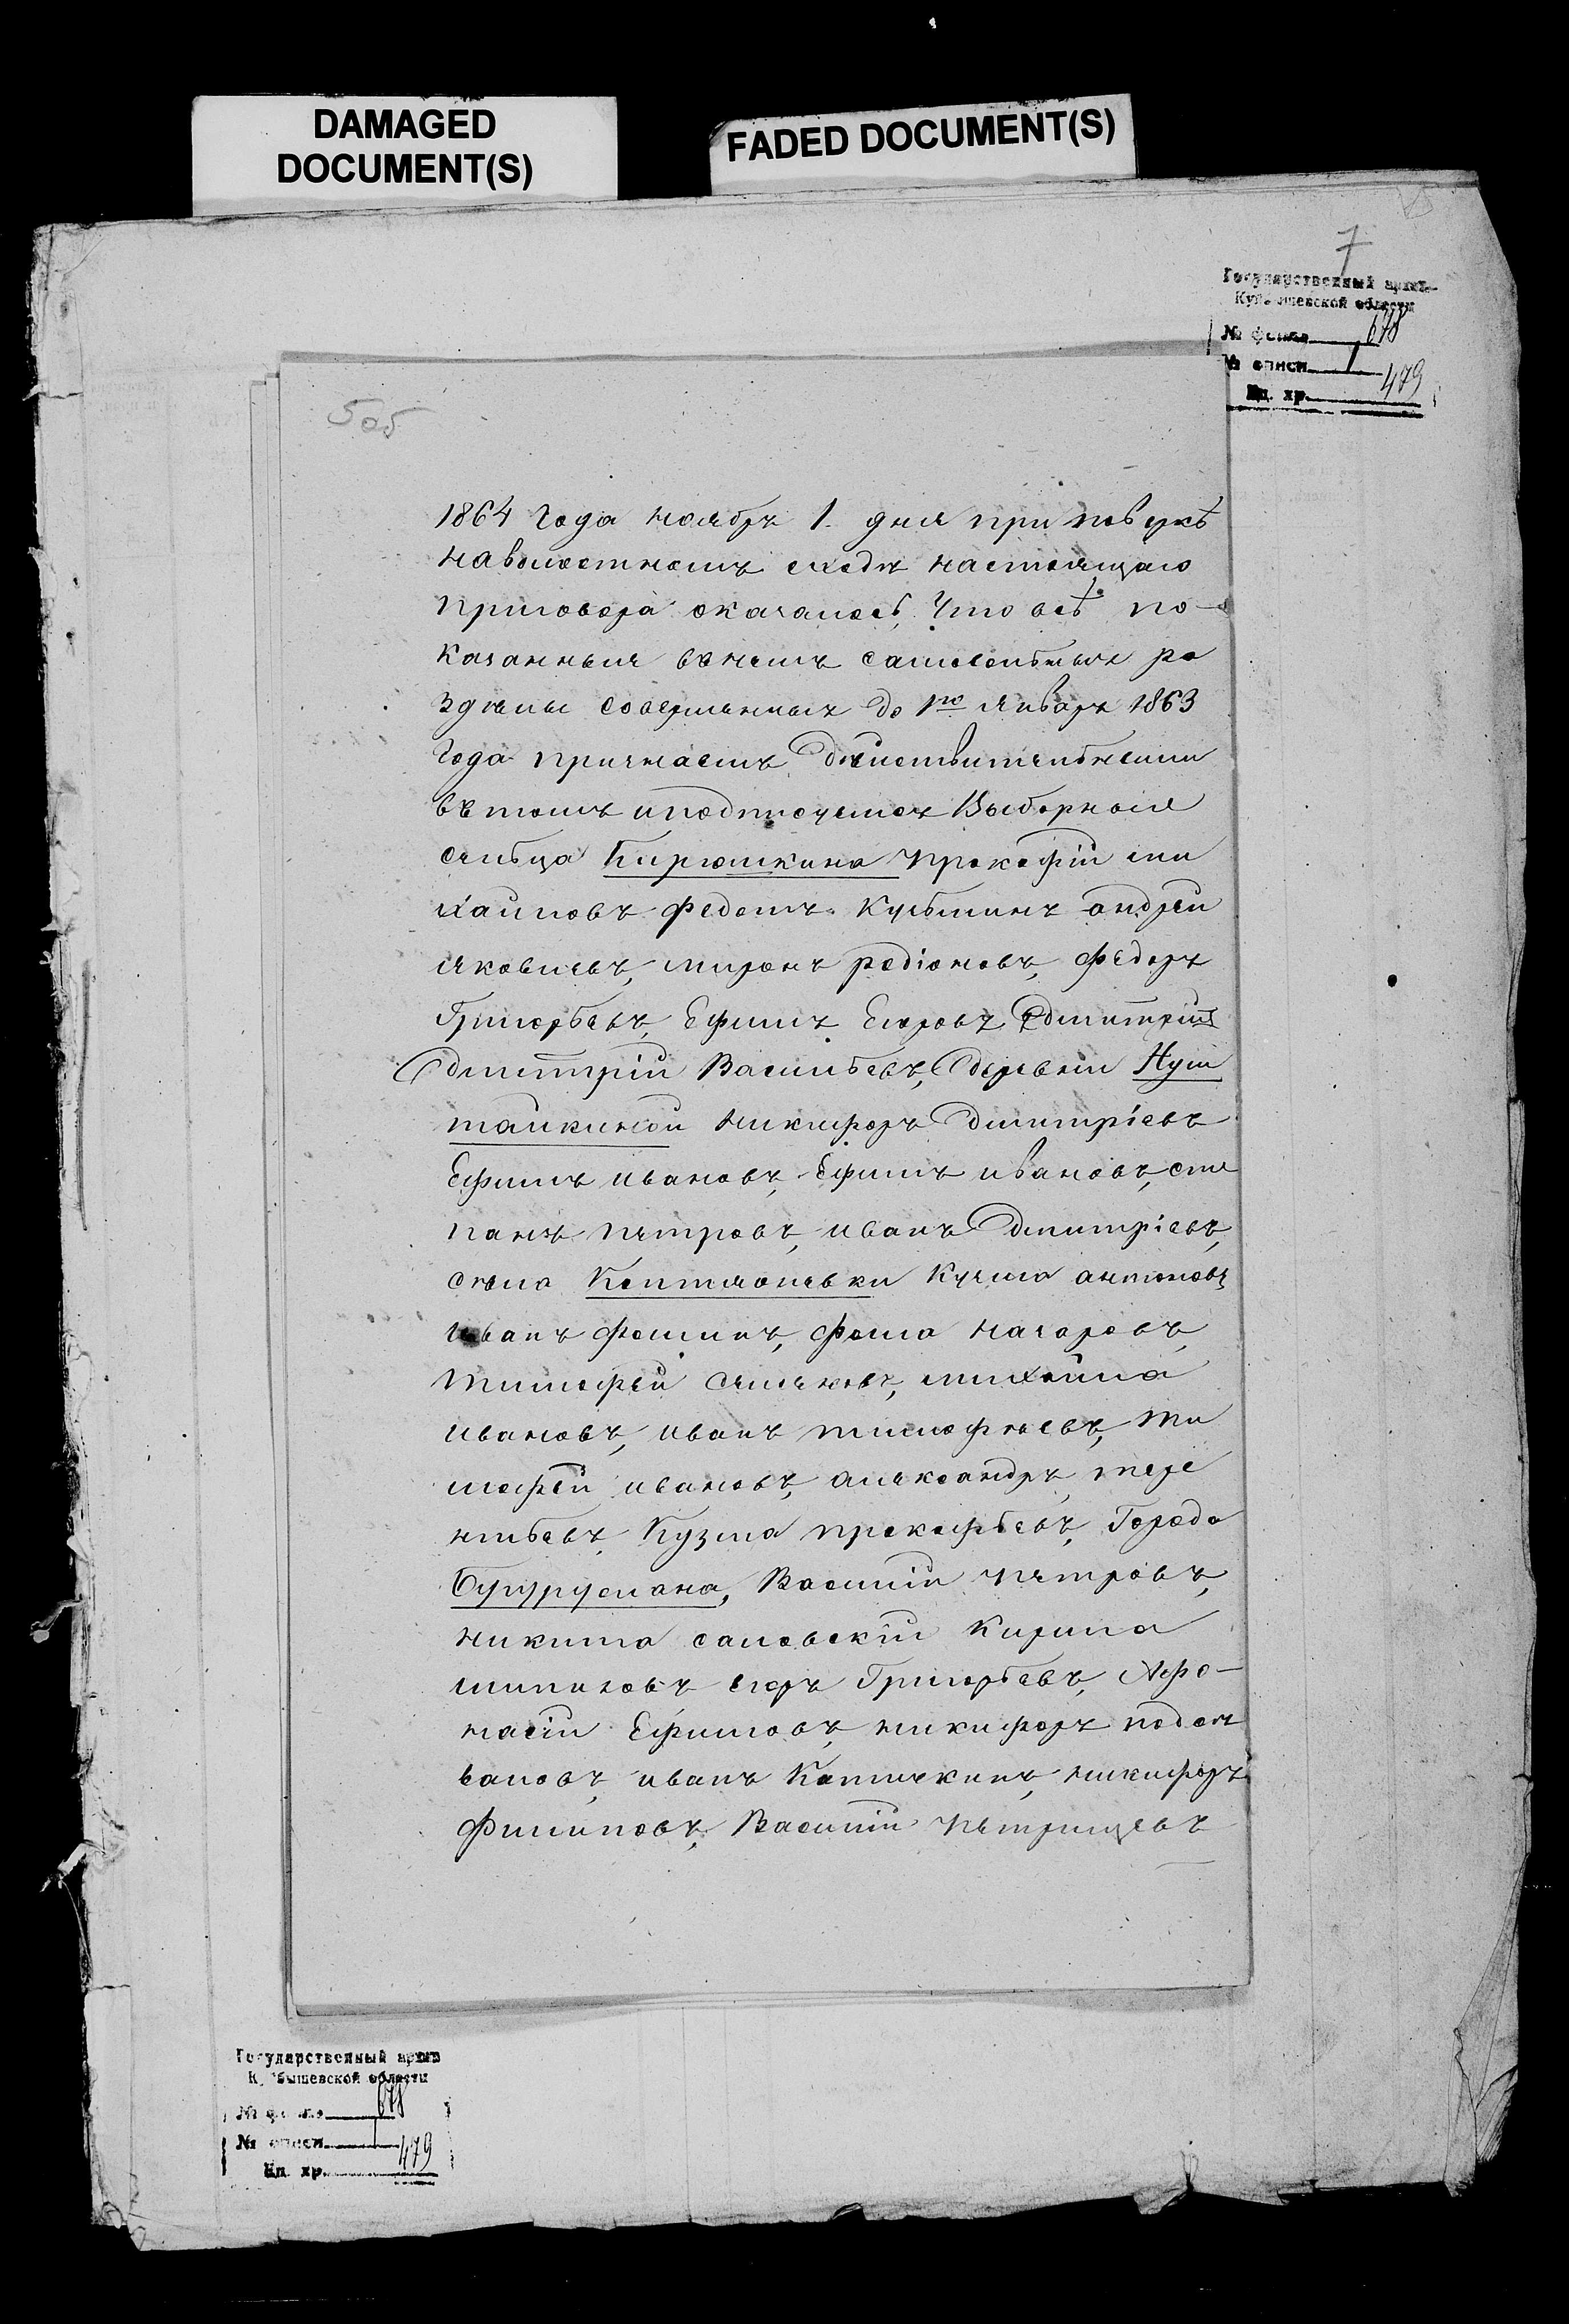 DAMAGED
DOCUMENT(S)
FADED DOCUMENT(S)
7
Государственный архив
Куйбышевской области
№ фонда 678
№ описи 1
Ед. хр. 479
5 об
1864 года ноябрь 1. дня при повѣркѣ
на волостномъ сходѣ настоящаго
приговора оказалось, что всѣ по-
казанныя въ немъ самовольныя ра
здѣлы совершенныхъ до 1го январъ 1863
года причнаемъ действительными
въ томъ и подпісуемся Выборныя
сельца Кирюшкина Прокофій ми
хайловъ Федотъ Кузьминъ андрей
яковлевъ, миронъ родіоновъ, Федоръ
Григорьевъ, Ефимъ Егоровъ дмитрій
дмитрій Васильевъ, деревни Нуш
тайкиной Никифоръ Дмитріевъ
Ефимъ ивановъ, Ефимъ ивановъ, сте
панъ петровъ, иванъ Дмитріевъ,
села Коптяжевки Кузма антоновъ
Иванъ Фоминъ, Фома назаровъ,
тимофей семеновъ, михайла
ивановъ, иванъ тимофеевъ, Ти
мофей ивановъ, александръ тере
нтьевъ, Кузма прокофьевъ, Города
Бугуруслана, Василій петровъ,
никита Кирила
егоръ Григорьевъ, Афо-
насій Ефимовъ, никифоръ
иванъ никифоръ
Филиповъ, Василій петрищевъ
Государственный архив
Куйбышевской области
№ фонда 678
№ описи 1
Ед. хр. 479